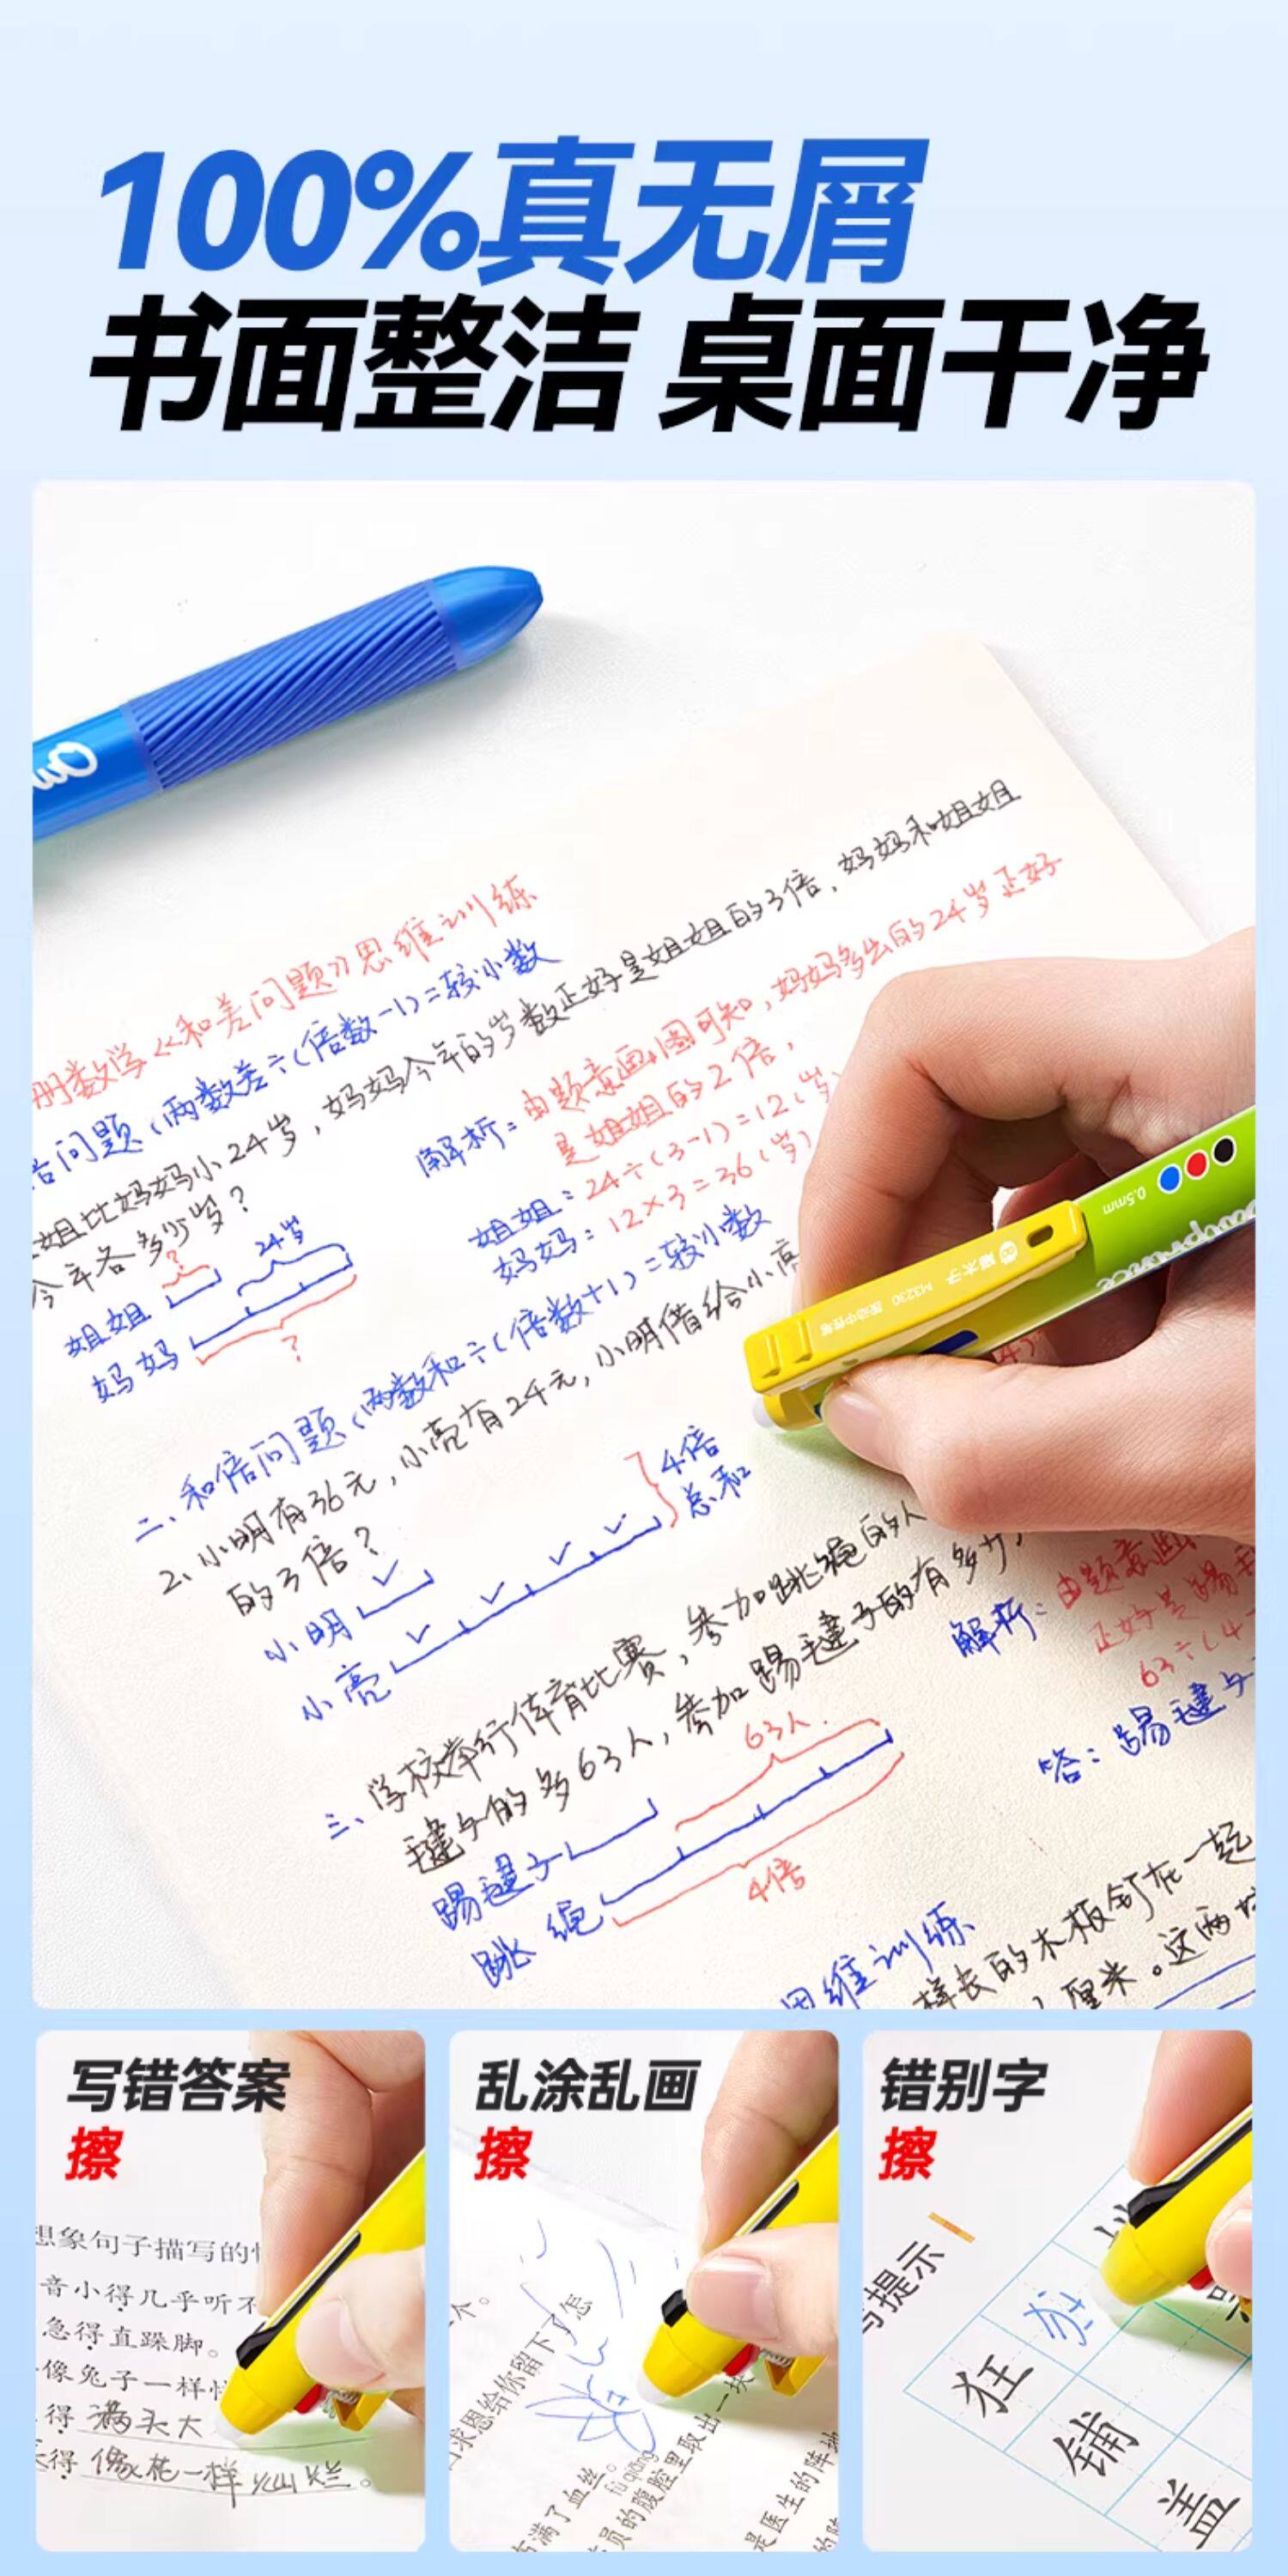 100%真无屑
书面整洁 桌面干净
册数学《和差问题》思维训练
倍问题(两数差÷(倍数-1)=较小数
姐比妈妈小24岁,妈妈今年的岁数正好是姐姐的3倍,妈妈和姐姐
今年各多少岁?
解析:由题意画图可知,妈妈多出的24岁正好
是姐姐的2倍,
姐姐:24÷(3-1)=12(岁)
妈妈:12×3=36(岁)
?
24岁
姐姐
妈妈
?
二、和倍问题(两数和÷(倍数+1)=较小数
2、小明有36元,小亮有24元,小明借给小亮
的3倍?
小明
小亮
4倍
总和
0.5mm
M3230 按动中性笔
三、学校举行体育比赛,参加跳绳的人
毽子的多63人,参加踢毽子的有多少,
63人.
踢毽子
跳绳
4倍
解析:由题意画
正好是踢
63÷(4-
答:踢毽子
思维训练
样长的木板钉在一起
厘米。这两
写错答案
擦
想象句子描写的
音小得几乎听不
急得直跺脚。
像兔子一样
得 满头大
得 像花一样灿烂。
乱涂乱画
擦
个。
求恩给你留下了怎
满了血丝。
fù qiāng
员的腹腔里取出一块
是医生的阵地
错别字
擦
写提示
狂
铺
盖